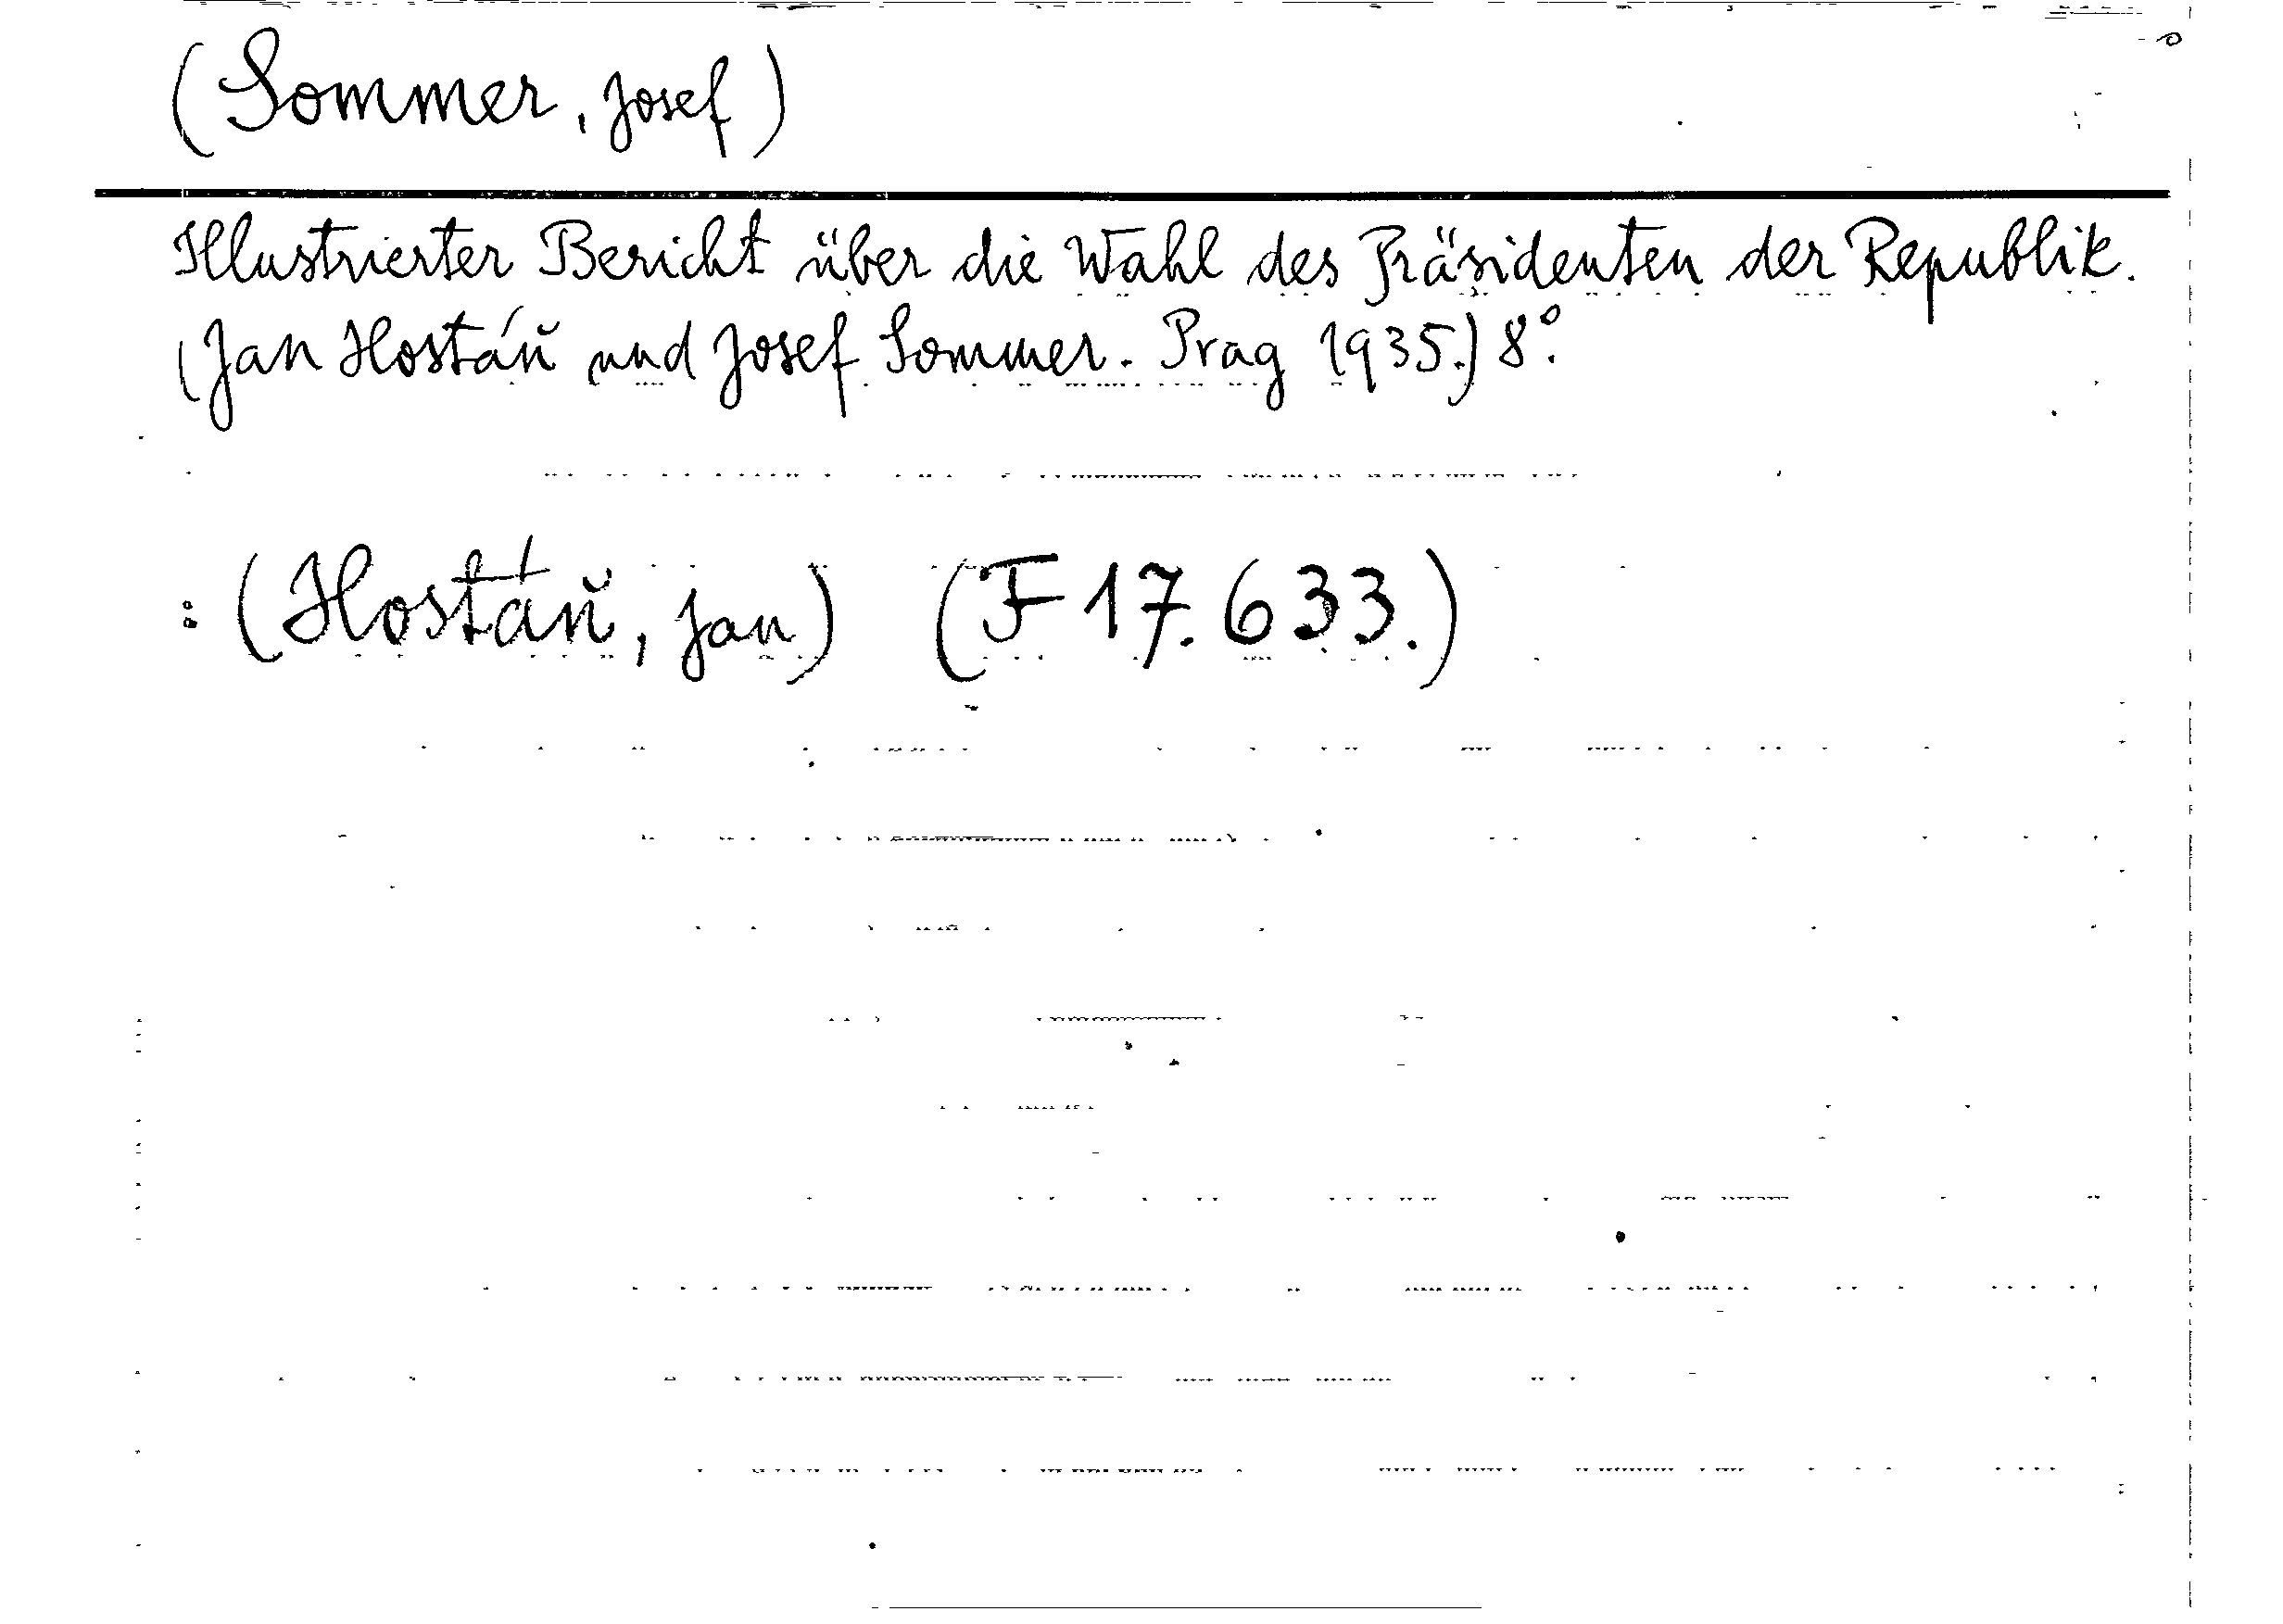 (Sommer, Josef)
Illustrierter Bericht über die Wahl des Präsidenten der Republik.
(Jan Hostáň und Josef Sommer. Prag 1935.) 8°.
: (Hostáň, Jan) (F 17.633.)